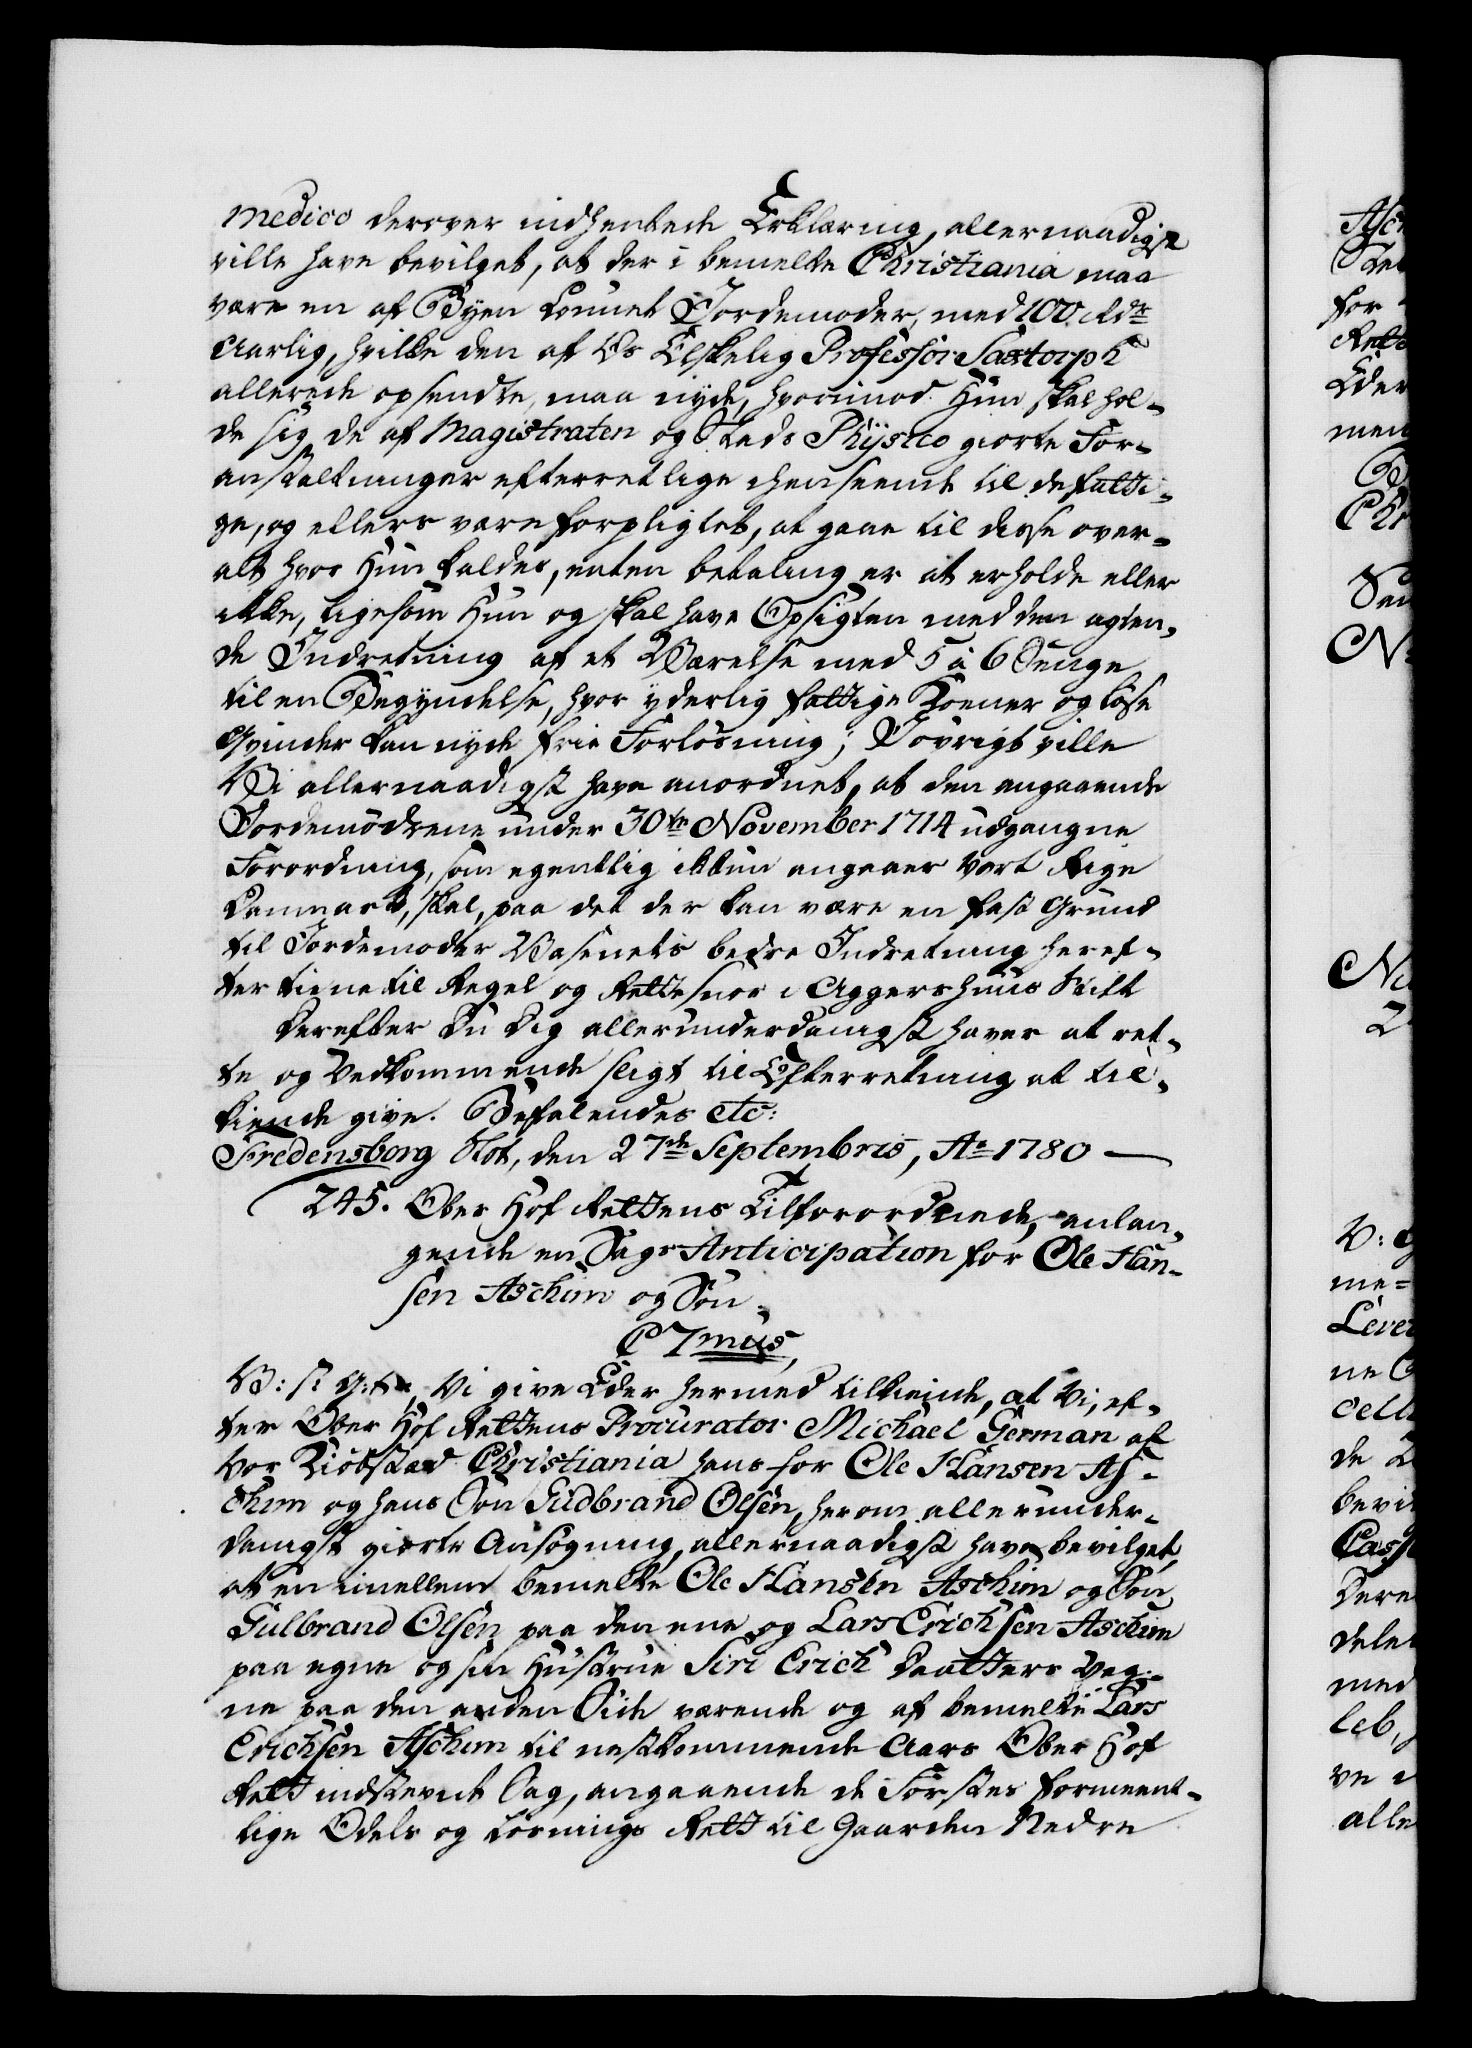 Medico derover indhentede Erklæring, allernaadigst
ville have bevilget, at der i bemelte Christiania maa
være en af Byen lønnet Jordemoder, med 100 Rdr
Aarlig, hvilke den af Os Elskelig Professor Saxtorph
allerede opsendte, maa nyde, hvorimod Hun skal hol-
de sig de af Magistraten og Stads Physico giorte For-
anstaltninger efterretlige i henseende til de fatti-
ge, og ellers være forpligtet, at gaae til disse over-
alt hvor Hun kaldes, enten betaling er at erholde eller
ikke, ligesom Hun og skal have Opsigten med den agten-
de Indretning af et Værelse med 5 à 6 Senge
til en Begyndelse, hvor yderlig fattige Koener og løse
Qvinder kan nyde frie Forløsning; I øvrigt ville
Vi allernaadigst have anordnet, at den angaaende
Jordemødrene under 30te November 1714 udgangne
Forordning, som egentlig ikkun angaaer Vort Rige
Danmark, skal, paa det der kan være en fast Grund
til Jordemoder Væsenets bedre Indretning heref-
ter tiene til Regel og Rettesnor i Aggershuus Stift
Derefter Du Dig allerunderdanigst haver at ret-
te og Vedkommende sligt til Efterretning at til-
kiende give. Befalendes etc:
Fredensborg Slot, den 27de Septembris, Ao 1780 —
245. Ober Hof Rettens Tilforordnede, anlan-
gende en Sags Anticipation for Ole Han-
sen Aschim og Søn.
C 7mus,
V: s: G: t: Vi give Eder hermed tilkiende, at Vi, ef-
ter Ober Hof Rettens Procurator Michael German af
Vor Kiøbstæd Christiania hans for Ole Hansen As-
chim og hans Søn Gudbrand Olsen, herom allerunder-
danigst giorte Ansøgning, allernaadigst have bevilget,
at en imellem bemelte Ole Hansen Aschim og Søn
Gulbrand Olsen paa den ene og Lars Erichsen Aschim
paa egne og sin Hustrue Siri Erich Daatters Veg-
ne paa den anden Side værende og af bemelte Lars
Erichsen Aschim til nestkommende Aars Ober Hof
Rett indstevnt Sag, angaaende de Førstes formeent-
lige Odels og Løsnings Rett til Gaarden Nedre